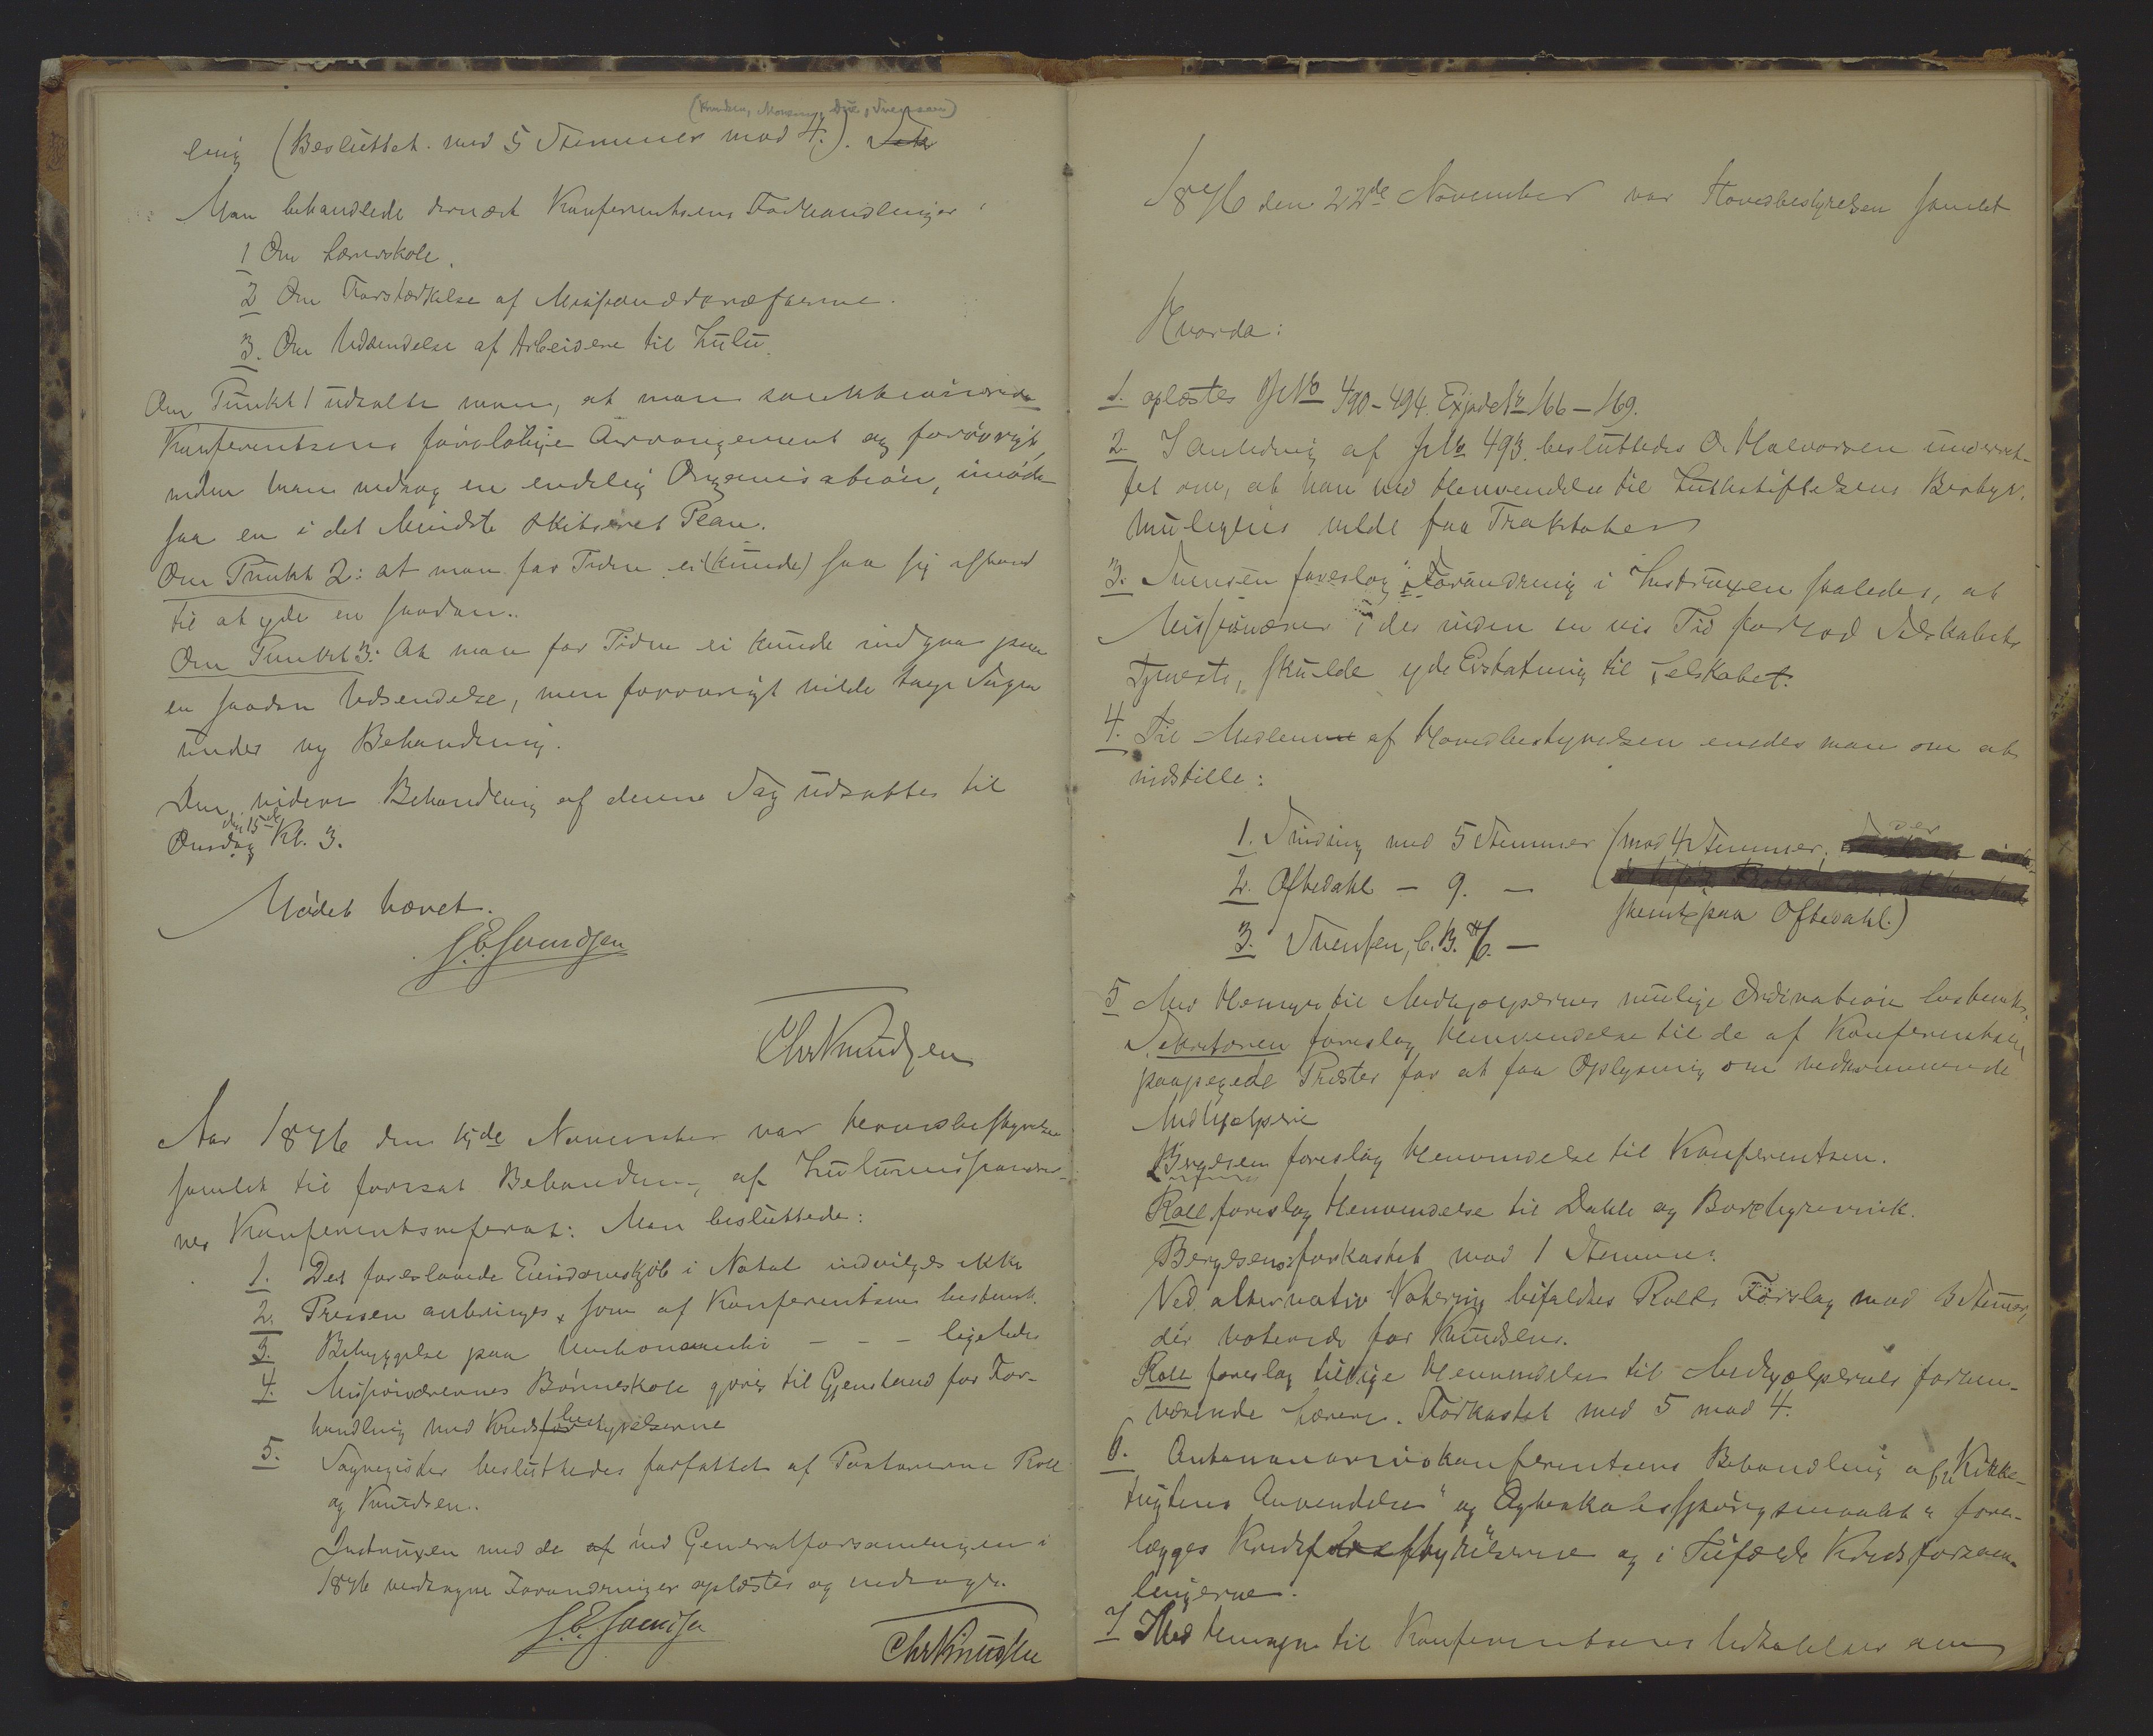 (Knudsen, Monsen, Dye, Svensen)
ling (Besluttet med 5 Stemmer mod 4.).
Man behandlede dernæst Konferentsens Forhandlinger
1 Om Lærerskole.
2 Om Forstærkelse af Missionskræfterne.
3. Om Udsendelse af Arbeidere til Zulu.
Om Punkt 1 udtalte man, at man sanktionerede
Konferentsens foreløbige Arrangement og forøvrigt,
inden man vedtog en endelig Organisation, imøde-
saa en i det Mindste skitseret Plan.
Om Punkt 2: at man for Tiden ei (kunde) saa sig istand
til at yde en saadan.
Om Punkt 3: At man for Tiden ei kunde indgaa paa
en saadan Udsendelse, men forøvrigt vilde tage Sagen
under ny Behandling.
Den videre Behandling af denne Sag udsattes til
Onsdag den 15de Kl. 3.
Mødet hævet.
Chr Knudsen
Aar 1876 den 15de November var Hovedbestyrelsen
samlet til fortsat Behandling af Zulumissionærer-
nes Konferentsreferat: Man besluttede:
1. Det foreslaaede Eiendomskjøb i Natal indvilges ikke
2. Pressen anbringes, som af Konferentsen bestemt.
3. Bebyggelse paa - - - ligeledes
4. Missionærernes Børneskole gjøres til Gjenstand for For-
handling med Kredsbestyrelserne
5. Sagregister besluttedes forfattet af Pastorerne Roll
og Knudsen.
Instruxen med de af ved Generalforsamlingen i
1876 vedtagne Forandringer oplæstes og vedtoges.
Chr Knudsen
1876 den 22de November var Hovedbestyrelsen samlet
Hvorda:
1. oplæstes JNo 490-494. Expede No 166-169.
2. I Anledning af JNo 493 besluttedes O. Halvorsen underret-
tet om, at han ved Henvendelse til Lutherstiftelsens Bestyr.
muligens vilde faa Traktater
3. Svensen foreslog "Forandring i Instruxen saaledes, at
Missionærer, der inden en vis Tid forlod Selskabets
Tjeneste, skulde yde Erstatning til Selskabet.
4. Til Medlem af Hovedbestyrelsen enedes man om at
indstille:
1. med 5 Stemmer (mod 4 Stemmer, der
2. Oftedahl - 9. -
stemte paa Oftedahl.)
3. Svensen, C. B. 6. -
5 Med Hensyn til Medhjælpernes mulige Ordination bestemtes.
Sekretæren foreslog Henvendelse til de af Konferentsen
paapegede Prester for at faa Oplysning om vedkommende
Medhjælpere
Bergesen foreslog Henvendelse til Konferentsen.
Roll foreslog Henvendelse til Dahle og Borchgrevink.
Bergesens forkastet mod 1 Stemme.
Ved alternativ Votering bifaldtes Rolls Forslag mod 3 Stemmer,
der voterede for Knudsens.
Roll foreslog tillige Henvendelse til Medhjælpernes forhen-
værende Lærere. Forkastet med 5 mod 4.
6. Antananarivokonferentsens Behandling af "Kirke-
tugtens Anvendelse" og "Ægteskabsspørgsmaalet" fore-
lægges Kredsbestyrelserne og i Tilfælde Kredsforsam-
lingerne.
7 Med Hensyn til Konferentsens Udtalelser om